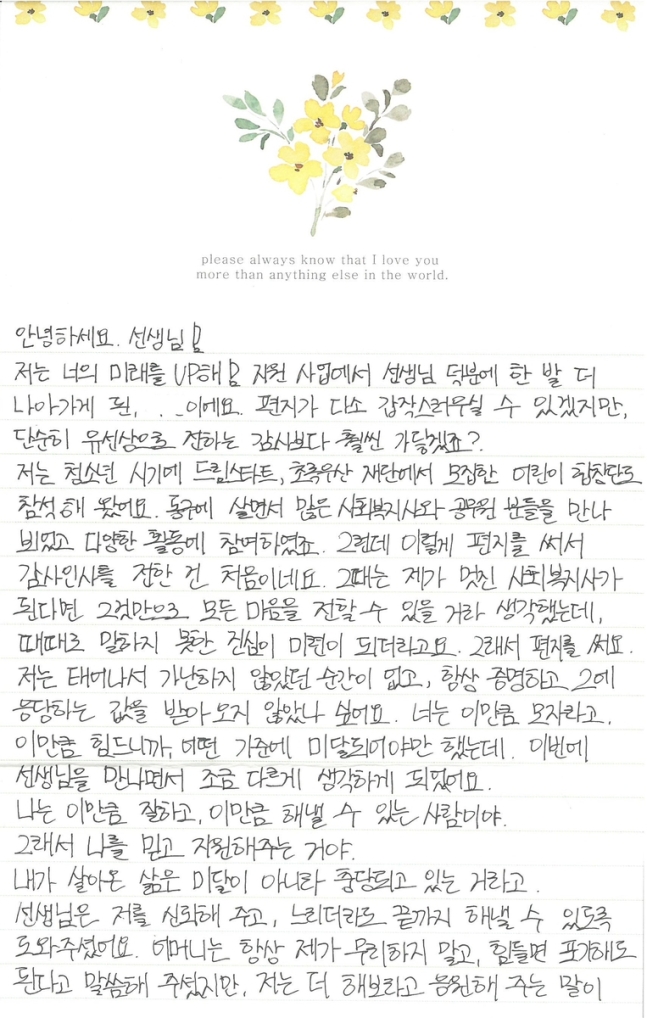 please always know that I love you
more than anything else in the world.
안녕하세요. 선생님!
저는 너의 미래를 UP해! 지원 사업에서 선생님 덕분에 한 발 더
나아가게 된, . . 이에요. 편지가 다소 갑작스러우실 수 있겠지만,
단순히 유선상으로 전하는 감사보다 훨씬 가득겠죠?
저는 청소년 시기에 드림스타트, 초록우산 재단에서 모집한 어린이 합창단도
참석해 왔어요. 동구에 살면서 많은 사회복지사와 공무원 분들을 만나
뵈었고 다양한 활동에 참여하였죠. 그런데 이렇게 편지를 써서
감사인사를 전한 건 처음이네요. 그때는 제가 멋진 사회복지사가
된다면 그것만으로 모든 마음을 전할 수 있을 거라 생각했는데,
때때로 말하지 못한 진심이 미련이 되더라고요. 그래서 편지를 써요.
저는 태어나서 가난하지 않았던 순간이 없고, 항상 증명하고 그에
응당하는 값을 받아오지 않았나 싶어요. 너는 이만큼 모자라고,
이만큼 힘드니까, 어떤 기준에 미달되어야만 했는데. 이번에
선생님을 만나면서 조금 다르게 생각하게 되었어요.
나는 이만큼 잘하고, 이만큼 해낼 수 있는 사람이야.
그래서 나를 믿고 지원해주는 거야.
내가 살아온 삶은 미달이 아니라 충당되고 있는 거라고.
선생님은 저를 신뢰해 주고, 느리더라도 끝까지 해낼 수 있도록
도와주셨어요. 어머니는 항상 제가 무리하지 말고, 힘들면 포기해도
된다고 말씀해 주셨지만, 저는 더 해보라고 응원해 주는 말이